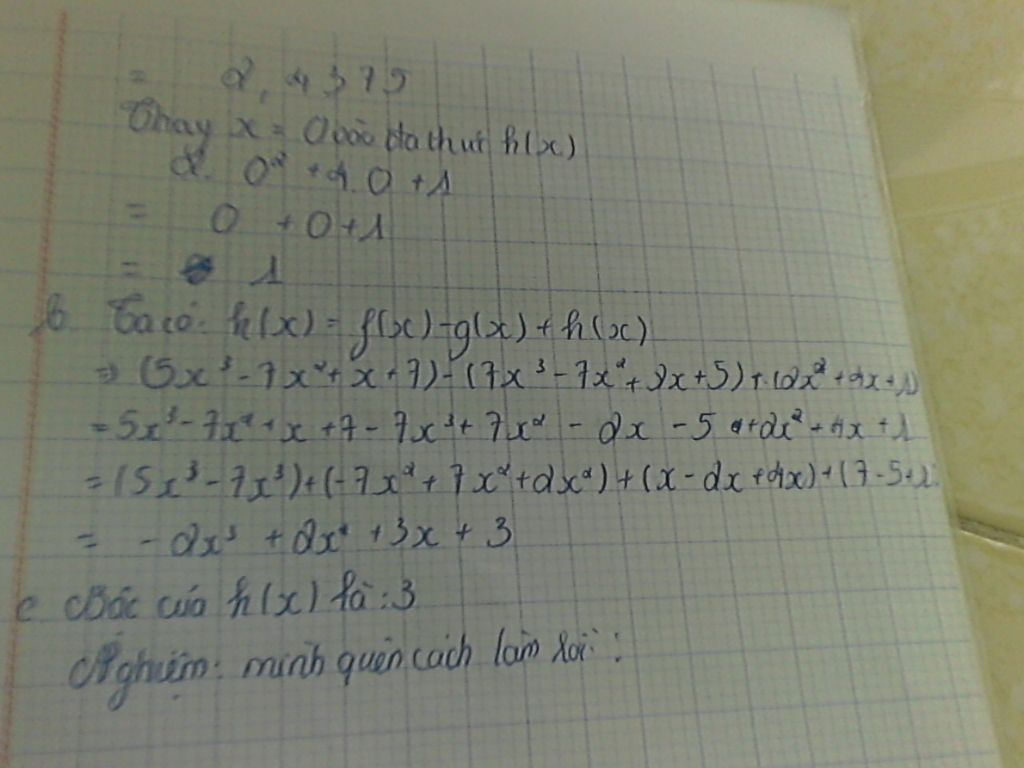 = 2,4375
Thay x = 0 vào đa thức h(x)
2. 0² + 4. 0 + 1
= 0 + 0 + 1
= 1
b. Ta có: k(x) = f(x) - g(x) + h(x)
=> (5x³ - 7x² + x + 7) - (7x³ - 7x² + 2x + 5) + (2x² + 4x + 1)
= 5x³ - 7x² + x + 7 - 7x³ + 7x² - 2x - 5 + 2x² + 4x + 1
= (5x³ - 7x³) + (-7x² + 7x² + 2x²) + (x - 2x + 4x) + (7 - 5 + 1)
= - 2x³ + 2x² + 3x + 3
c Bác của k(x) là : 3
Nghiệm: mình quên cách làm rồi :